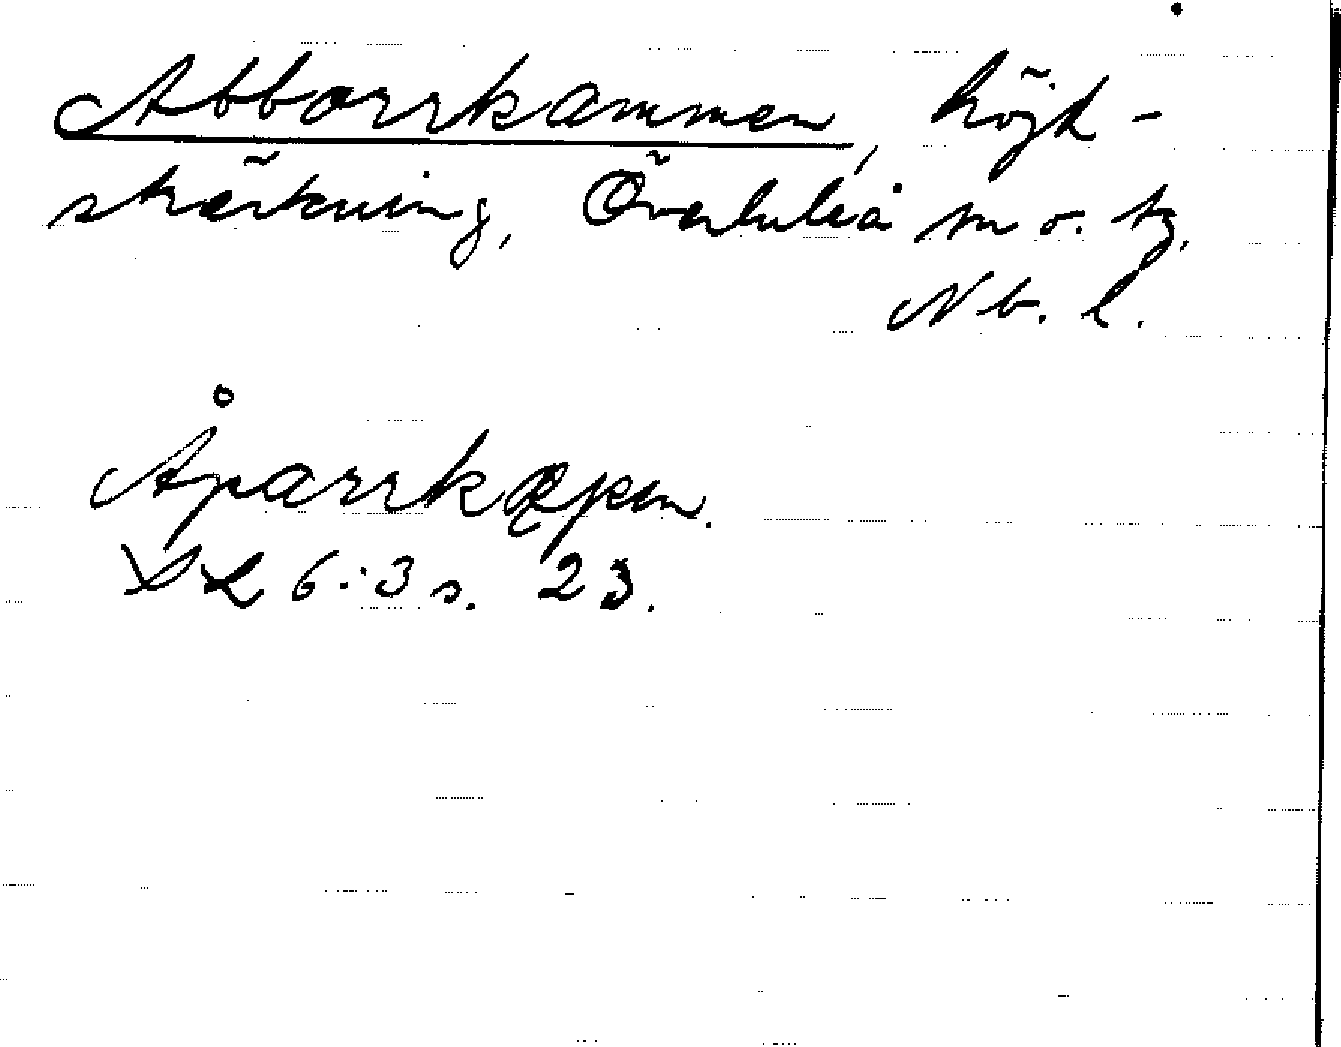 Abborrkammen, höjd-
sträckning, Överluleå sn o. tg,
Nb. l.
Åparrkæpen.
6:3 s. 23.